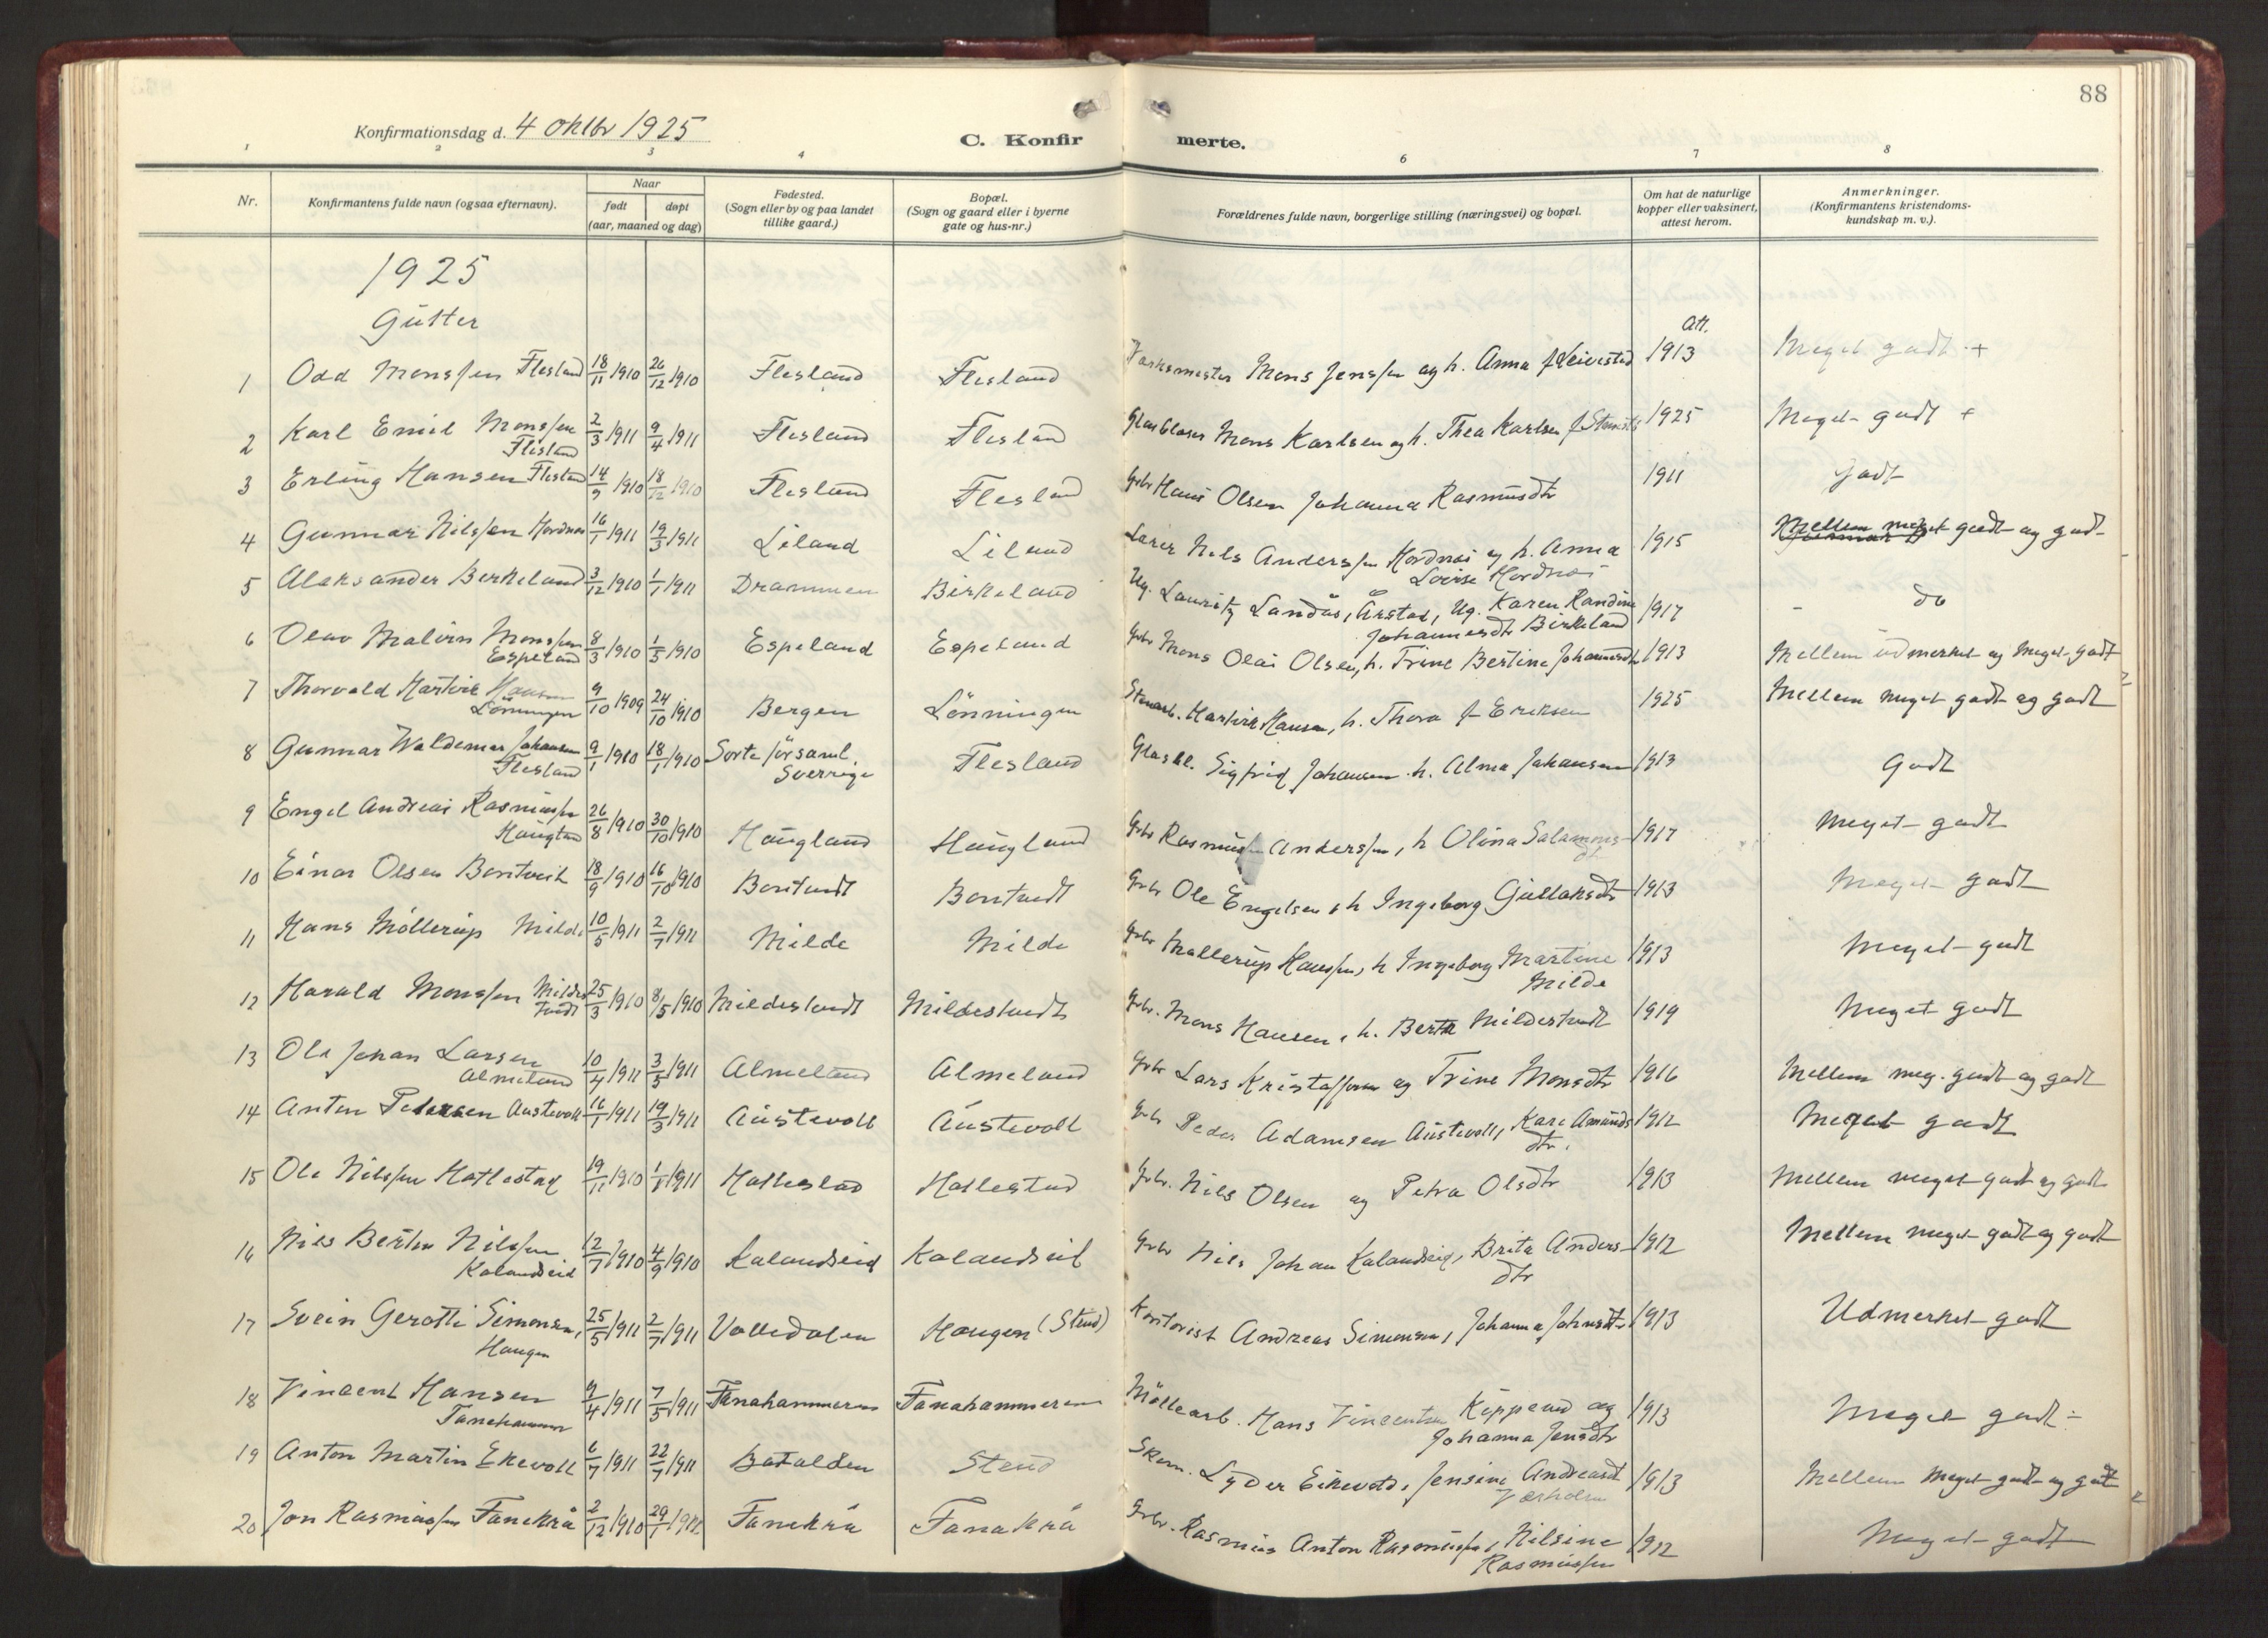 88
Konfirmationsdag d. 4 oktbr 1925
C. Konfir merte.
1 2 3 4 6 7 8
Nr.
Konfirmantens fulde navn (ogsaa efternavn).
Naar
født døpt
(aar, maaned og dag)
Fødested.
(Sogn eller by og paa landet
tillike gaard.)
Bopæl.
(Sogn og gaard eller i byerne
gate og hus-nr.)
Forældrenes fulde navn, borgerlige stilling (næringsvei) og bopæl.
Om hat de naturlige
kopper eller vaksinert,
attest herom.
Anmerkninger.
(Konfirmantens kristendoms-
kundskap m. v.).
1925
Gutter
Att.
1 Odd Monssen Flesland 18/11 1910 26/12 1910 Flesland Flesland Verksmester Mons Jenssen og h. Anna f 1913 Meget godt +
2 Karl Emil Monssen 2/3 1911 9/4 1911 Flesland Flesland Glasblaser Mons Karlsen og h. Thea Karlsen f 1925 Meget godt +
Flesland
3 Erling Hansen Flesland 14/9 1910 18/12 1910 Flesland Flesland Gbr Hans Olsen Johanna Rasmusdtr 1911 Godt
4 Gunnar Nilssen Hordnæs 16/1 1911 19/3 1911 Liland Liland Lærer Nils Anderssen Hordnæs og h. Anna 1915 Mellem meget godt og godt
Lovise Hordnæs
5 Aleksander Berkeland 3/12 1910 1/1 1911 Drammen Birkeland Ug. Lauritz Landås, Årstad, Ug. Karen Randine 1917 - do
Johannesdtr Birkeland
6 Olav Malvin Monssen 8/3 1910 1/5 1910 Espeland Espeland Gbr Mons Olai Olsen, h. Trine Bertine Johannesdtr 1913 Mellem udmerket og meget godt
Espeland
7 Thorvald Martvik Hansen 9/10 1909 24/10 1910 Bergen Lønningen Stenarb. Martvik Hansen, h. Thora f Eriksen 1925 Mellem meget godt og godt
Lønningen
8 Gunnar Waldemar Johansen 9/1 1910 18/1 1910 Sorte församl. Flesland Glasbl. Sigfrid Johansen h. Alma Johansen 1913 Godt
Flesland Sverrige
9 Engel Andreas Rasmussen 26/8 1910 30/10 1910 Haugland Haugland Gbr Rasmus Anderssen, h Olina Salamons- 1917 Meget godt
Haugland dt
10 Einar Olsen Bontveit 18/9 1910 16/10 1910 Bontvedt Bontvedt Gbr Ole Engelsen, h Ingeborg Gullaksdtr 1913 Meget godt
11 Hans Møllerup Milde 10/5 1911 2/7 1911 Milde Milde Gbr Møllerup Hanssen, h Ingeborg Martine 1913 Meget godt
Milde
12 Harald Monssen Mildes 25/3 1910 8/5 1910 Mildestvedt Mildestvedt Gbr. Mons Hansen, h. Berta Mildestvedt 1919 Meget godt
tvedt
13 Ole Johan Larsen 10/4 1911 3/5 1911 Almeland Almeland Gbr Lars Kristoffersen og Trine Monsdtr 1916 Mellem meg. godt og godt
Almeland
14 Anton Petersen Austevoll 16/1 1911 19/3 1911 Austevoll Austevoll Gbr Peder Adamsen Austevoll, Kari Amunds 1912 Meget godt
dtr.
15 Ole Nilssen Hatlestad 19/11 1910 1/1 1911 Hatlestad Hatlestad Gbr. Nils Olsen og Petra Olsdtr 1913 Mellem meget godt og godt
16 Nils Bertin Nilssen 12/7 1910 4/9 1910 Kalandseid Kalandseid Gbr Nils Johan Kalandseid, Brita Anders- 1912 Mellem meget godt og godt
Kalandseid dtr
17 Svein Gerotti Simonsen, 25/5 1911 2/7 1911 Valledalen Haugen (Stend) Kontorist Andreas Simonsen, Johanna Johnsdtr 1913 Udmerket godt
Haugen
18 Vincent Hansen 9/4 1911 7/5 1911 Fanahammeren Fanahammeren Møllearb. Hans Vincentsen Kippersund og 1913 Meget godt -
Fanahammer Johanna Jensdtr
19 Anton Martin Ekevoll 6/7 1911 22/7 1911 Batalden Stend Skom. Lyder Eikevold, Jensine Andreasdt 1913 Mellem meget godt og godt
20 Jon Rasmussen Fanekrå 2/12 1910 29/1 1911 Fanekrå Fanakrå Gbr. Rasmus Anton Rasmussen, Nilsine 1912 Meget godt
Rasmussen